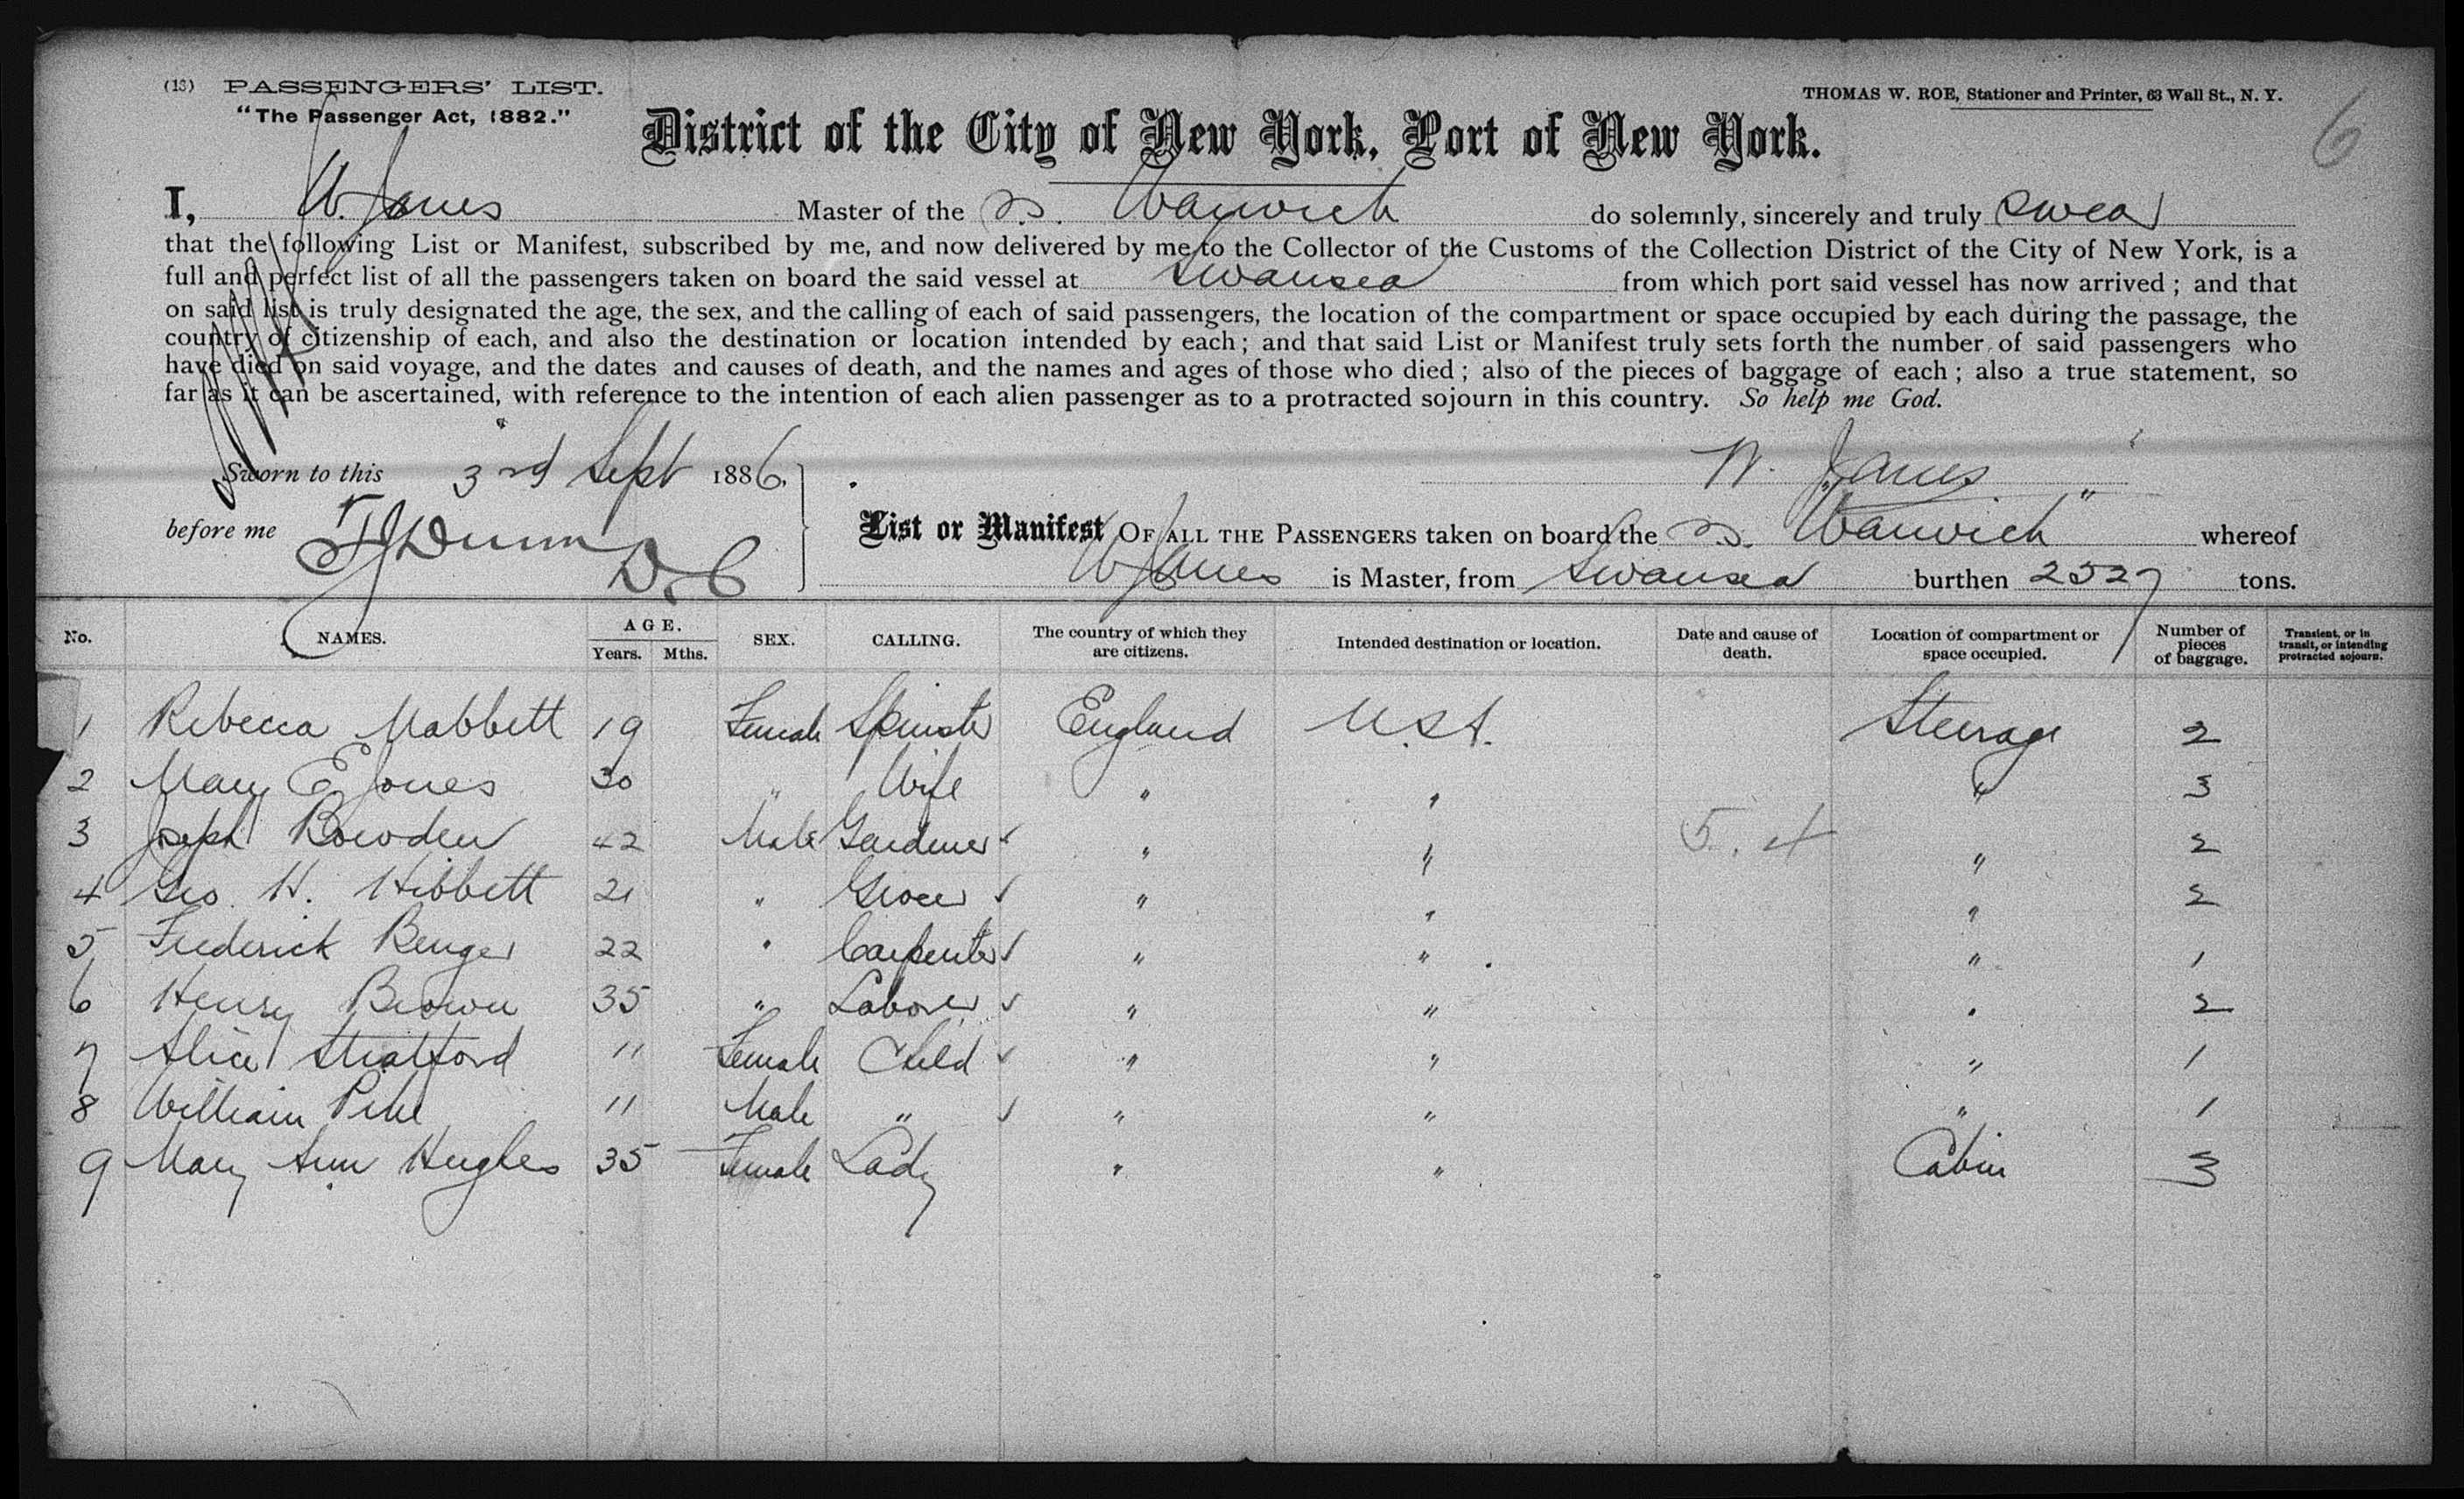 (13) PASSENGERS' LIST.
"The Passenger Act, 1882."
THOMAS W. ROE, Stationer and Printer, 63 Wall St., N. Y.
6
District of the City of New York, Port of New York.
I, W. Jones Master of the SS. Warwick do solemnly, sincerely and truly swear
that the following List or Manifest, subscribed by me, and now delivered by me to the Collector of the Customs of the Collection District of the City of New York, is a
full and perfect list of all the passengers taken on board the said vessel at Swansea from which port said vessel has now arrived; and that
on said list is truly designated the age, the sex, and the calling of each of said passengers, the location of the compartment or space occupied by each during the passage, the
country of citizenship of each, and also the destination or location intended by each; and that said List or Manifest truly sets forth the number of said passengers who
have died on said voyage, and the dates and causes of death, and the names and ages of those who died; also of the pieces of baggage of each; also a true statement, so
far as it can be ascertained, with reference to the intention of each alien passenger as to a protracted sojourn in this country. So help me God.
Sworn to this 3rd Sept 1886, W. Jones
before me Dunn D.C
List or Manifest OF ALL THE PASSENGERS taken on board the SS. Warwick" whereof
W Jones is Master, from Swansea burthen 2527 tons.
No. NAMES. AGE. Years. Mths. SEX. CALLING. The country of which they are citizens. Intended destination or location. Date and cause of death. Location of compartment or space occupied. Number of pieces of baggage. Transient, or in transit, or intending protracted sojourn.
1 Rebecca Mabbett 19 Female Spinster England U.S.A. Steerage 2
2 Mary E Jones 30 " Wife " " " 3
3 Joseph Bowden 42 Male Gardener ✓ " " 5. 4 " 2
4 Geo. H. Hibbett 21 " Grocer ✓ " " " 2
5 Frederick Benger 22 " Carpenter ✓ " " " 1
6 Henry Brown 35 " Laborer ✓ " " " 2
7 Alice Stratford 11 Female Child ✓ " " " 1
8 William Pike 11 Male " ✓ " " " 1
9 Mary Ann Hughes 35 Female Lady " " Cabin 3